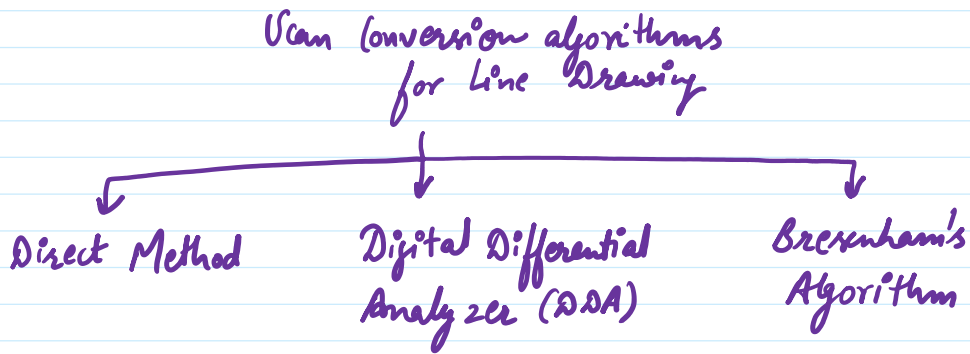 Scan Conversion algorithms
for Line Drawing
Direct Method
Digital Differential
Analyzer (DDA)
Bresenham's
Algorithm